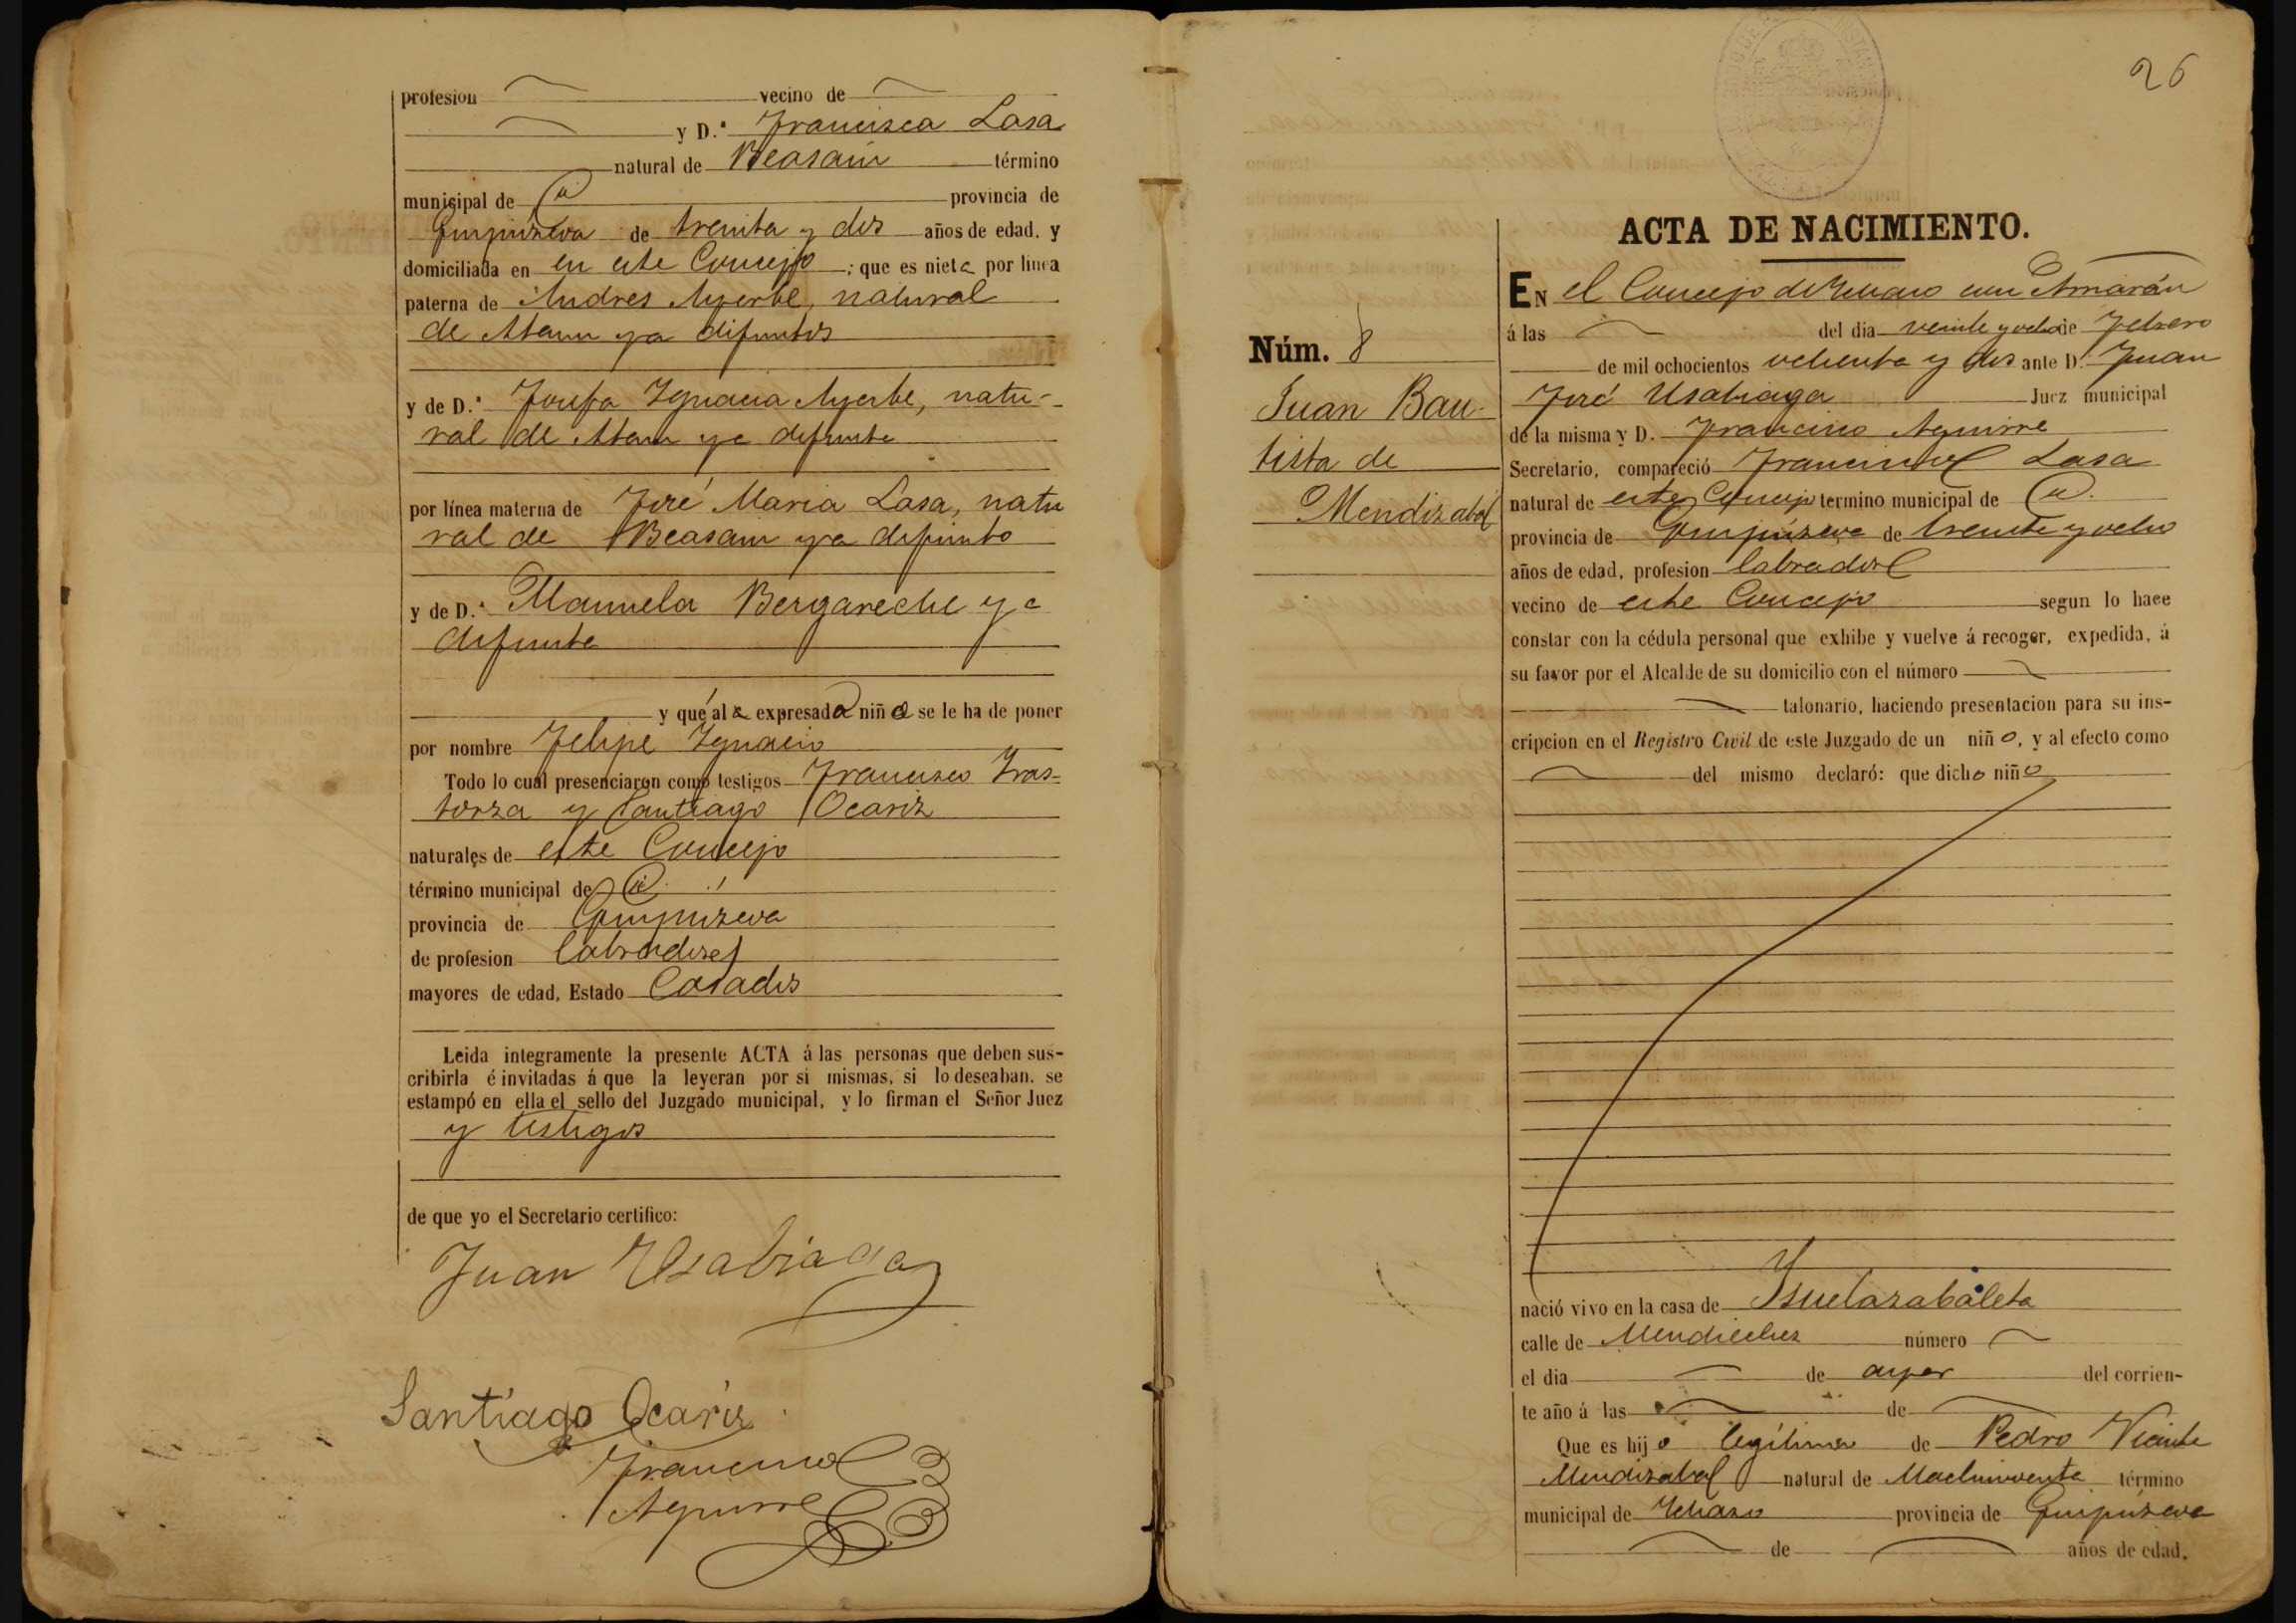 profesion vecino de
y D.ª Francisca Lasa
natural de Beasain término
municipal de id provincia de
Guipúzcoa de treinta y dos años de edad, y
domiciliada en en este Concejo ; que es nieta por linea
paterna de Andres Ayerbe, natural
de Ataun ya difuntos
y de D.ª Josefa Ygnacia Ayerbe, natu-
ral de Ataun ya difunta
por línea materna de José Maria Lasa, natu
ral de Beasain ya difunto
y de D.ª Manuela Bergareche ya
difunta
y que al a expresada niña se le ha de poner
por nombre Felipe Ygnacio
Todo lo cual presenciaron como testigos Francisco Yras-
torza y Santiago Ocariz
naturales de este Concejo
término municipal de id
provincia de Guipuzcoa
de profesion labradores
mayores de edad, Estado Casados
Leida integramente la presente ACTA á las personas que deben sus-
cribirla é invitadas á que la leyeran por si mismas, si lo deseaban, se
estampó en ella el sello del Juzgado municipal, y lo firman el Señor Juez
y testigos
de que yo el Secretario certifico:
Juan Usabiaga
Santiago Ocariz
Francisco
Aguirre
26
ACTA DE NACIMIENTO.
Núm. 8
Juan Bau-
tista de
Mendizabal
EN el Concejo de Ychaso con Arriarán
á las del dia veinte y ocho de Febrero
de mil ochocientos ochenta y dos ante D. Juan
José Usabiaga Juez municipal
de la misma y D. Francisco Aguirre
Secretario, compareció Francisco Lasa
natural de este Concejo termino municipal de id.
provincia de Guipúzcoa de treinta y ocho
años de edad, profesion labrador
vecino de este Concejo segun lo hace
constar con la cédula personal que exhibe y vuelve á recoger, expedida, á
su favor por el Alcalde de su domicilio con el número
talonario, haciendo presentacion para su ins-
cripcion en el Registro Civil de este Juzgado de un niño, y al efecto como
del mismo declaró: que dicho niño
nació vivo en la casa de Ysuelazabaleta
calle de número
el dia de ayer del corrien-
te año á las de
Que es hijo legítimo de Pedro Vicente
Mendizabal natural de Machinventa término
municipal de Ychaso provincia de Guipúzcoa
de años de edad,